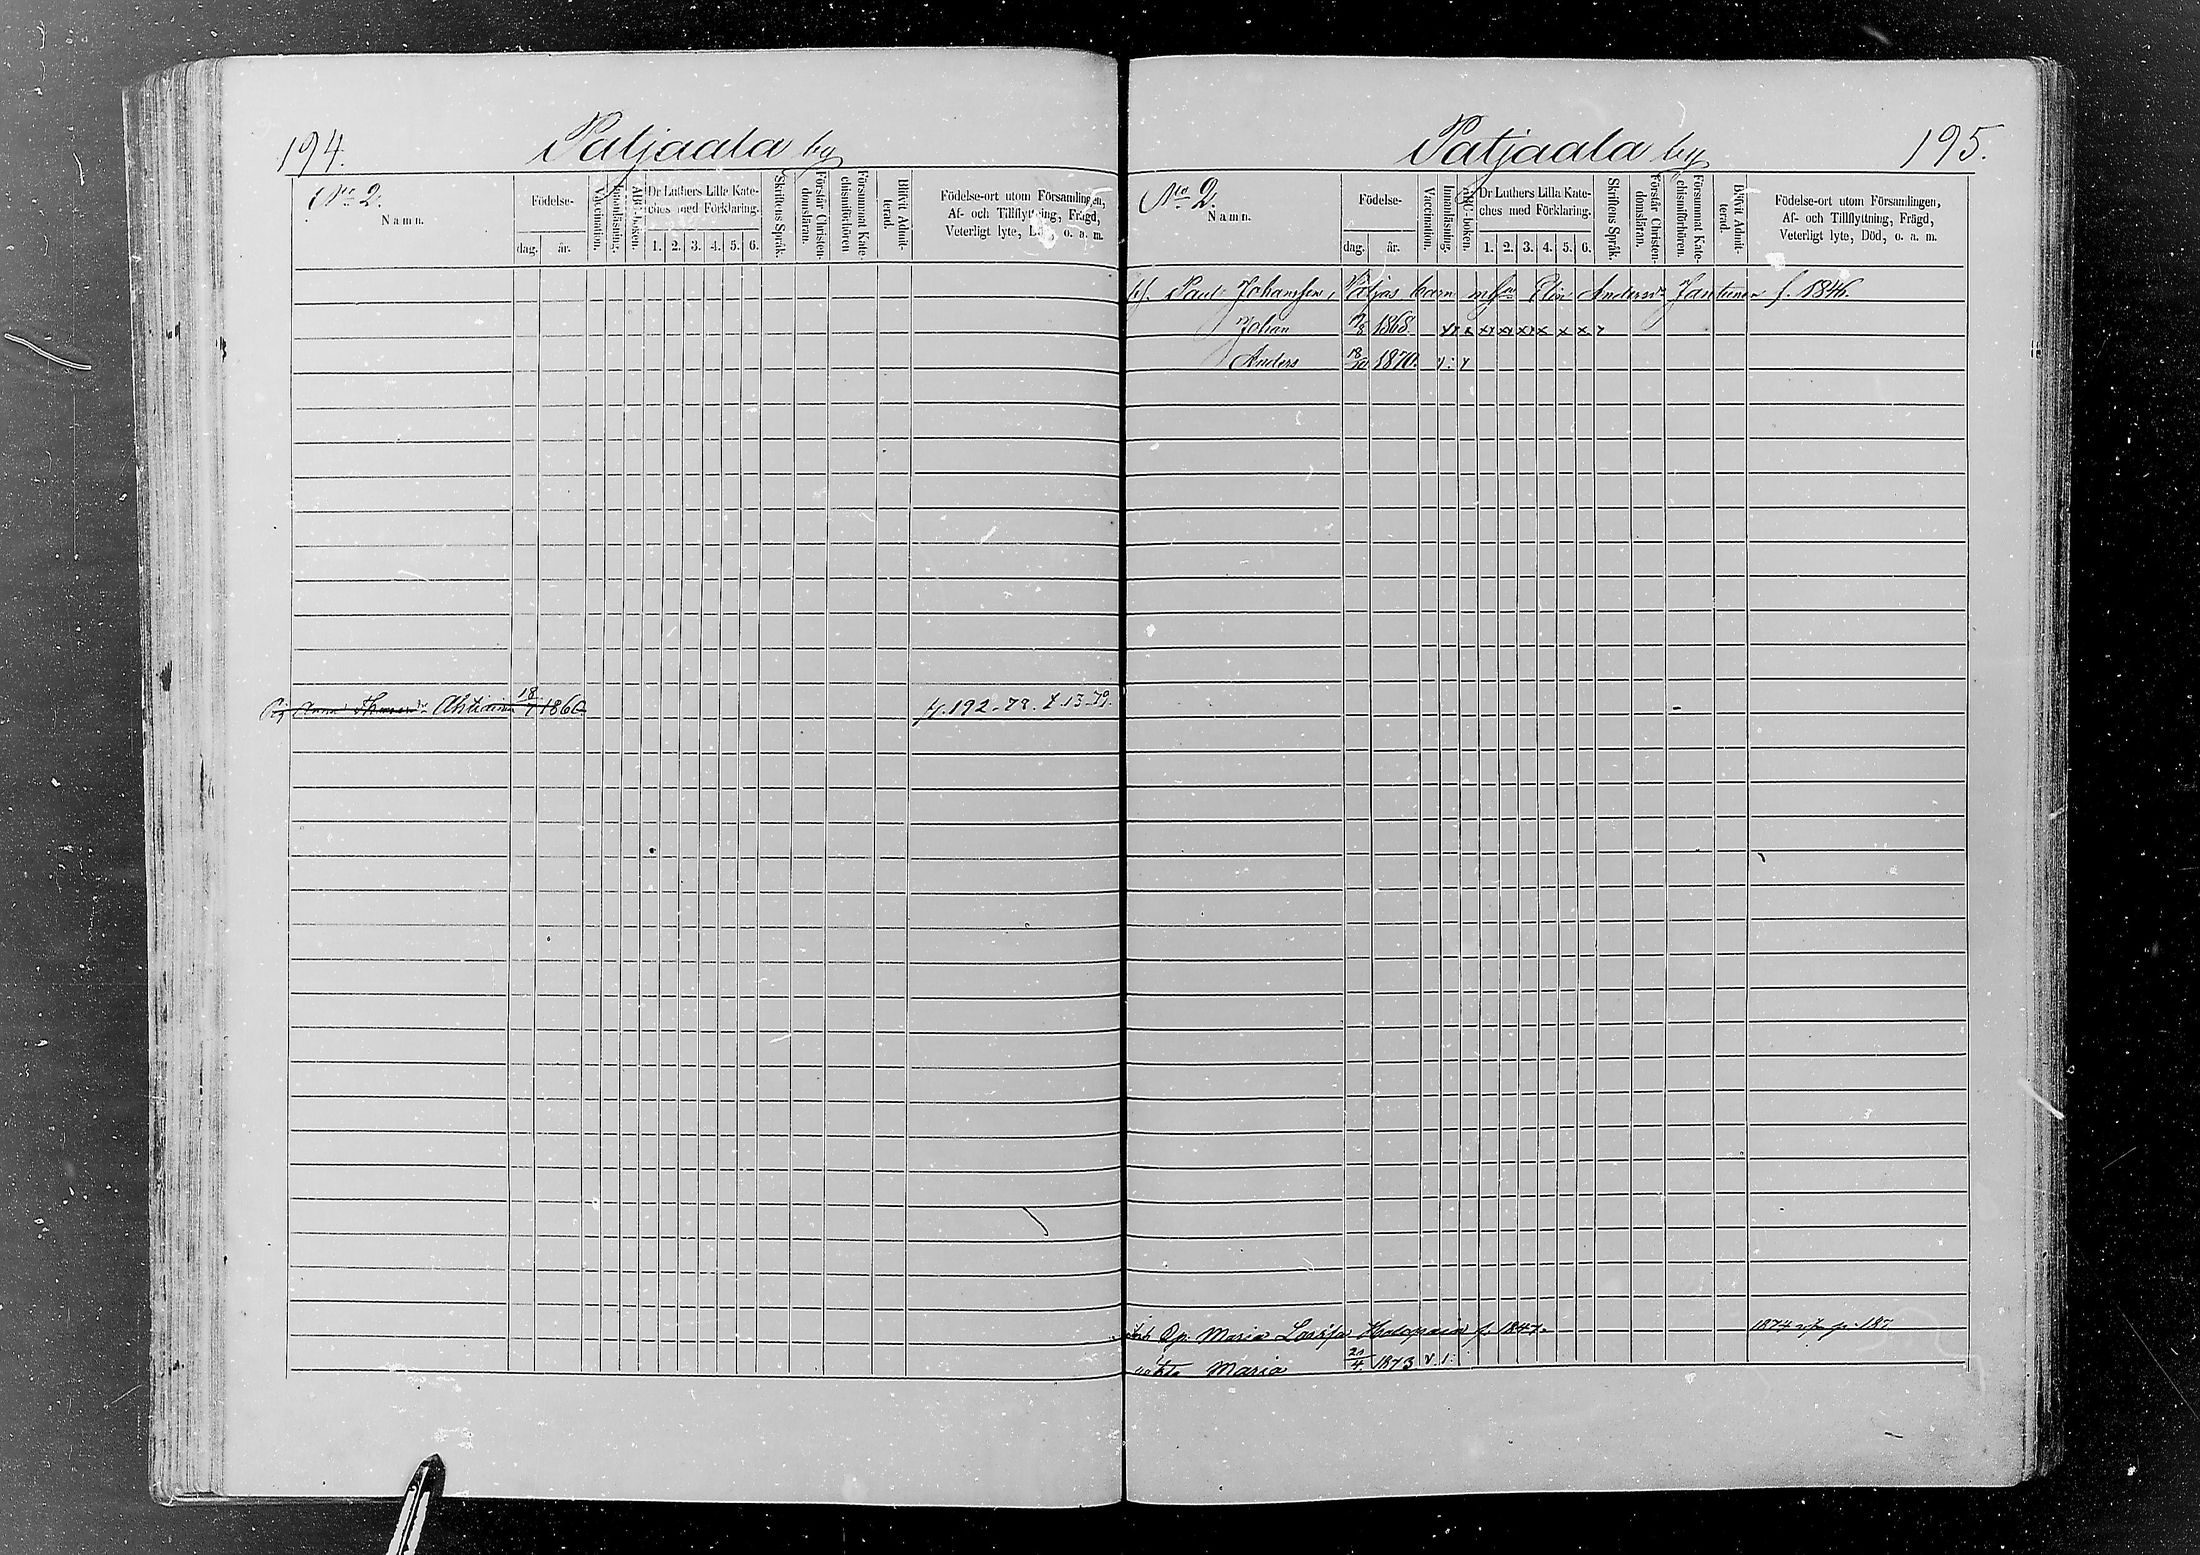 194.
Patjaala by
No 2.
Namn.
Födelse-
dag. år.
Vaccination.
Innanläsning.
ABC-boken.
Dr Luthers Lilla Kate-
ches med Förklaring.
1. 2. 3. 4. 5. 6.
Skriftens Språk.
Förstår Christen-
domsläran.
Försummat Kate-
chismiförhören
Blifvit Admit-
terad.
Födelse-ort utom Församlingen,
Af- och Tillflyttning, Frägd,
Veterligt lyte, Död, o. a. m.
Pig Anna Ahtiainen 18/7 1860. f. 192-78. t. 13-79.
Patjaala by
195.
No 2.
Namn.
Födelse-
dag. år.
Vaccination.
Innanläsning.
ABC-boken.
Dr Luthers Lilla Kate-
ches med Förklaring.
1. 2. 3. 4. 5. 6.
Skriftens Språk.
Förstår Christen-
domsläran.
Försummat Kate-
chismiförhören.
Blifvit Admit-
terad.
Födelse-ort utom Församlingen,
Af- och Tillflyttning, Frägd,
Veterligt lyte, Död, o. a. m.
Paul Johansson, Patjas barn Elin Andersdr Jantunen f. 1846.
Johan 1868.
Anders 18/10 1870.
Maria Lovisa Holopain f. 1847. 1874
Maria 1873